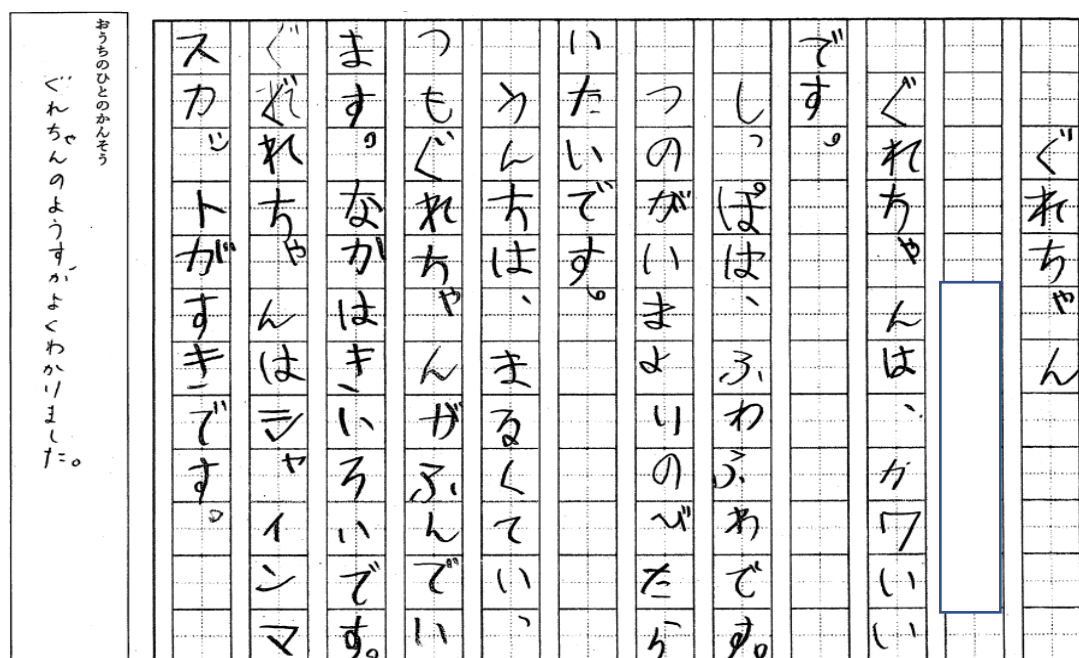 ぐれちゃん
ぐれちゃんは、カワいい
です。
しっぽは、ふわふわです。
つのがいまよりのびたら
いたいです。
うんちは、まるくてい、
つもぐれちゃんがふんでい
ます。なかはきいろいです。
ぐれちゃんはシャインマ
スカットがすきです。
おうちのひとのかんそう
ぐれちゃんのようすがよくわかりました。